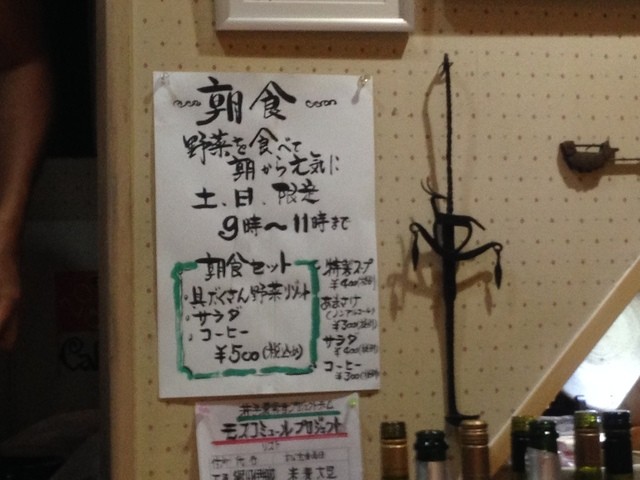 朝食
野菜を食べて
朝から元気に
土、日、限定
9時〜11時まで
朝食セット
・具だくさん野菜リゾット
・サラダ
・コーヒー
¥500(税込み)
スープ
¥400
あまさけ
(ノンアルコール)
¥300
サラダ
¥400
コーヒー
¥300
モスコミュールプロジェクト
リスト